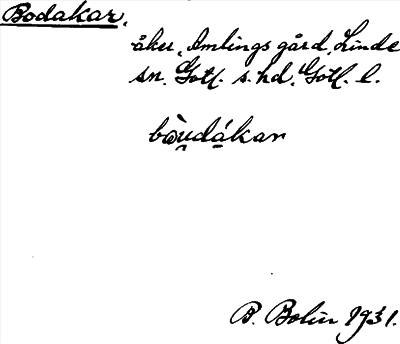 Bodakar,
åker, Amlings gård, Linde
sn. Gotl. s. hd. Gotl. l.
bὼu̯dákar
B. Bolin 1931.